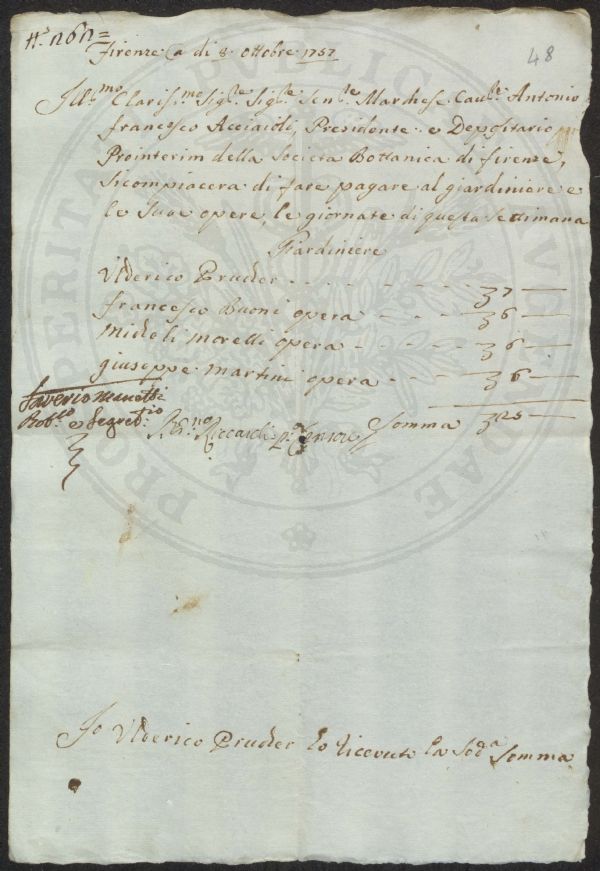 Firenze a di 8. Ottobre 1757
48
Ill.mo Clariss.mo Sig.re Sig.re Sen.re Marchese Cav.re Antonio
francesco Acciaioli, Presidente e Depositario
Prointerim della Societa Bottanica di firenze,
Si compiacera di fare pagare al giardiniere e
le Sue opere, le giornate di questa Settimana
Giardiniere
Ulderico Prucker - - - - - - - 7 —
francesco Buoni opera - - - - 6 —
Micholi morelli opera - - - - 6 —
giuseppe martini opera - - - - 6 —
Saverio Manetti
Segret.rio
Riccardi Censore Somma 25 —
Io Ulderico Prucker ho ricevuto la Sod.a Somma
PROSPERITATI PUBLICAE AUGENDAE